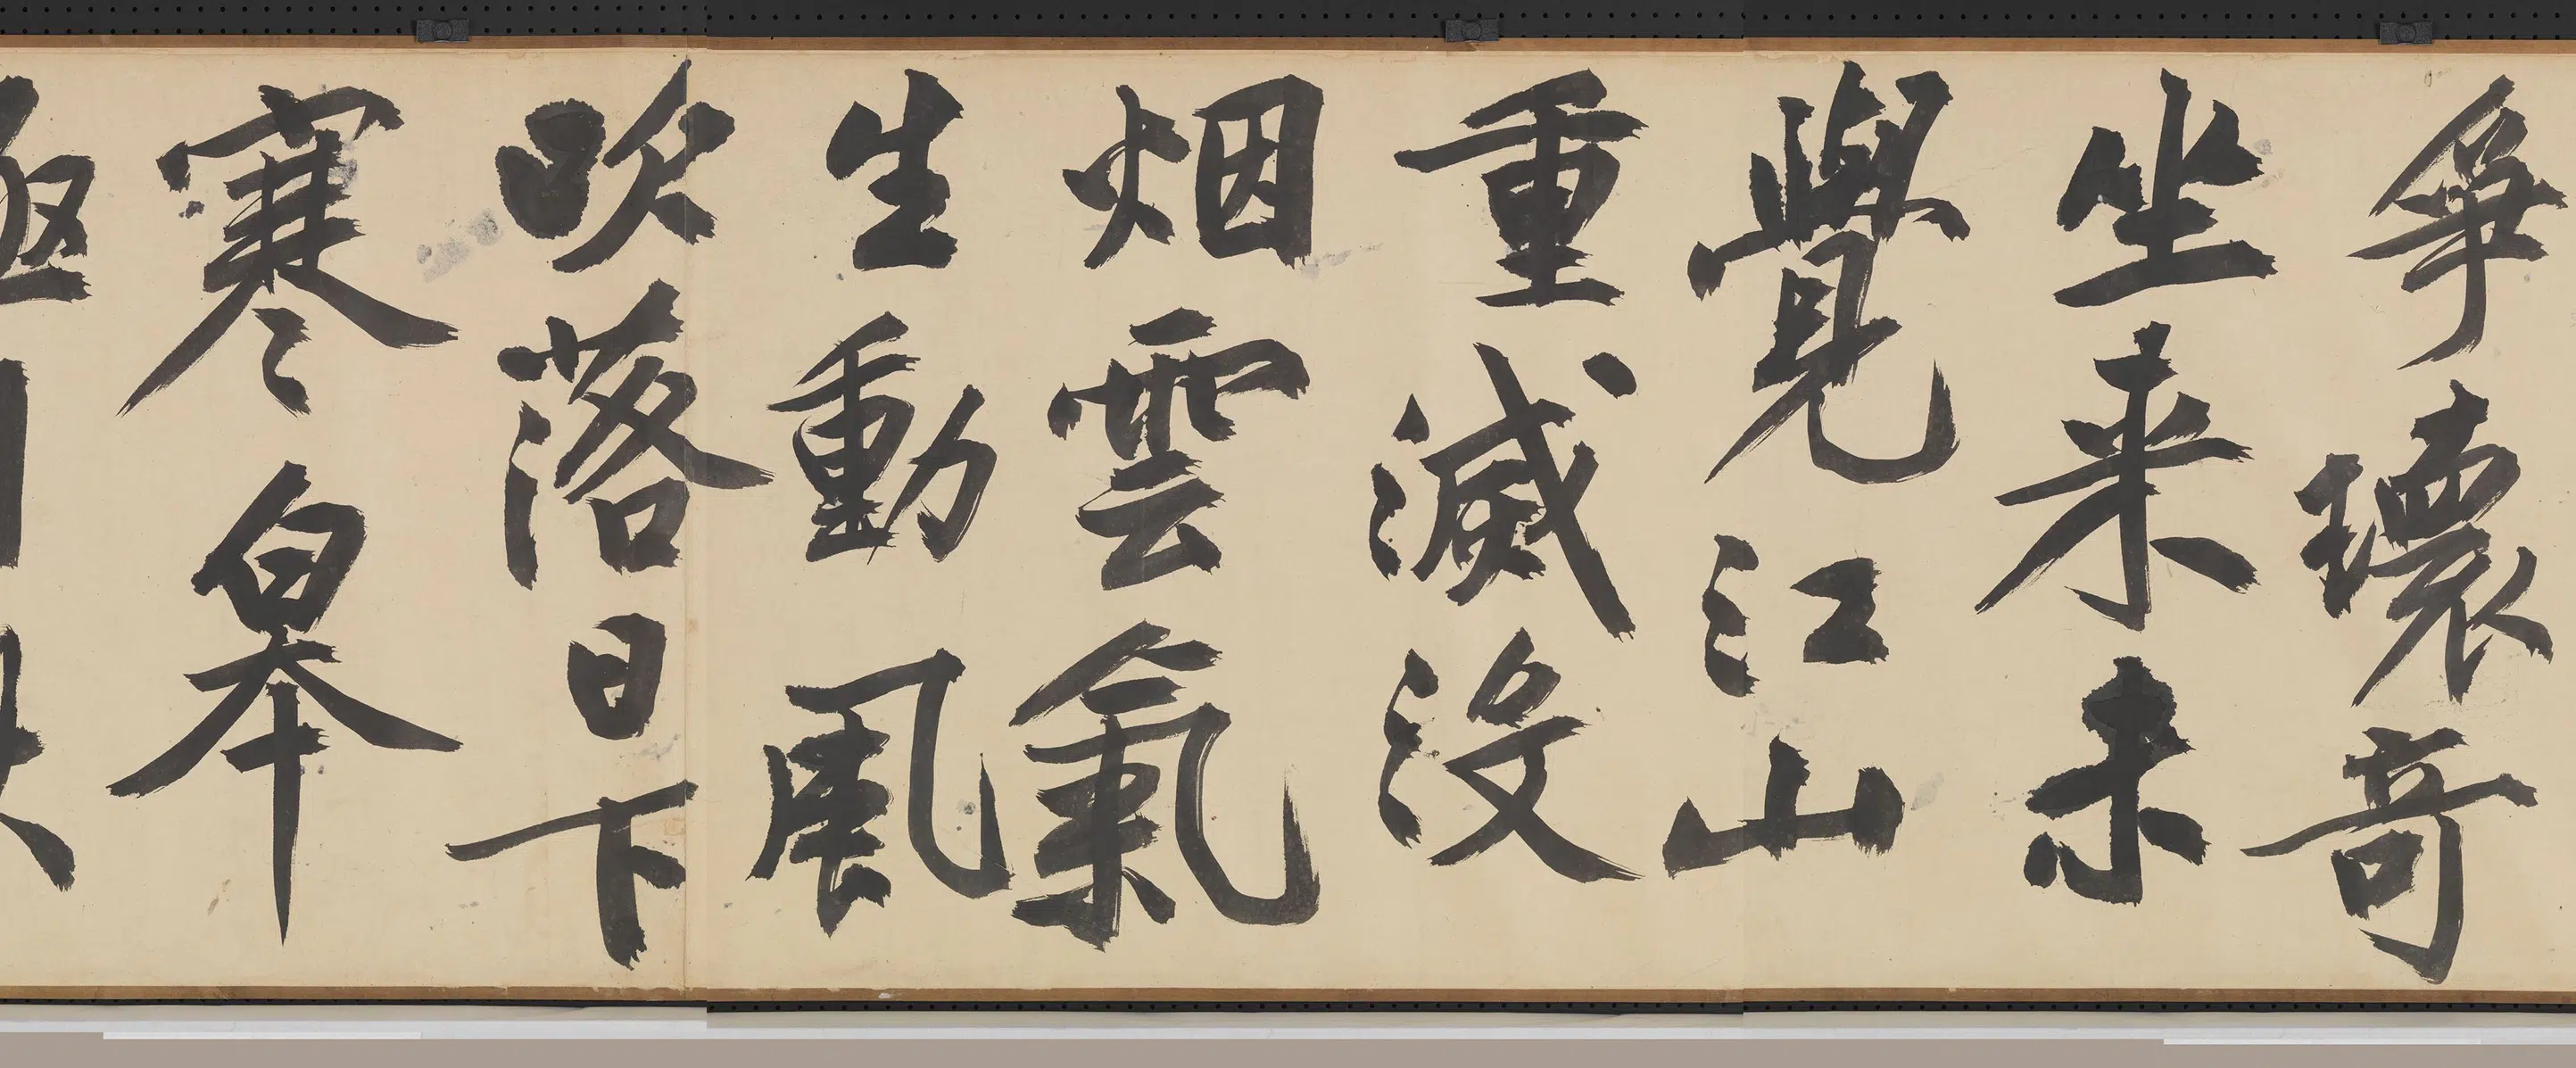 爭瓌奇
坐来未
覺江山
重滅没
烟雲氣
生動風
吹落日下
寒皋